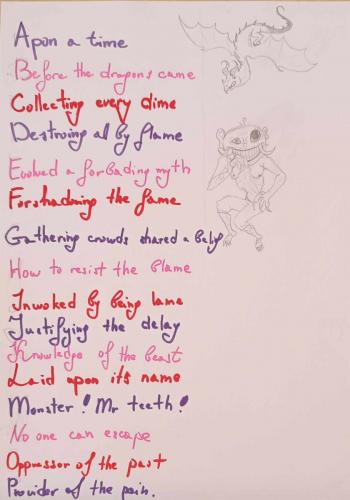 Apon a time
Before the dragons came
Collecting every dime
Destroing al by flame
Evolved a forbading myth
Forshadning the fame
Gathering crowds shared a
How to resist the blame
Invoked by being lame
Justifying the delay
Knowledge of the beast
Laid upon its name
Monster! Mr teeth!
No one can escape
Oppressor of the past
Provider of the pain.